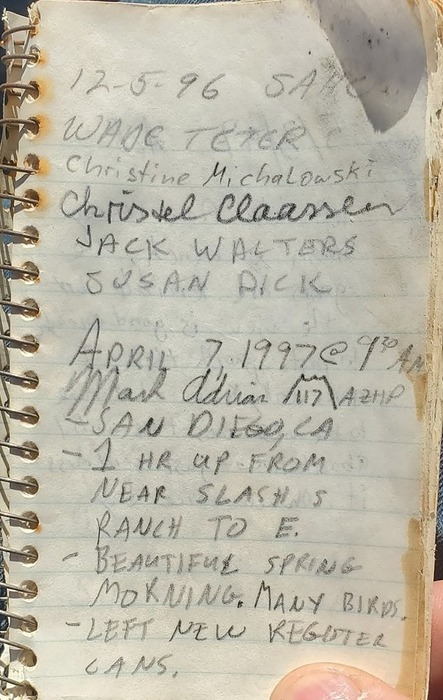 12-5-96 SAHC
WADE TETER
Christine Michalowski
Christel Claassen
JACK WALTERS
SUSAN DICK
APRIL 7, 1997 @ 9³⁰ AM
Mark Adrian 117 AZHP
- SAN DIEGO, CA
- 1 HR UP FROM
NEAR SLASH S
RANCH TO E.
- BEAUTIFUL SPRING
MORNING. MANY BIRDS.
- LEFT NEW REGISTER
CANS.